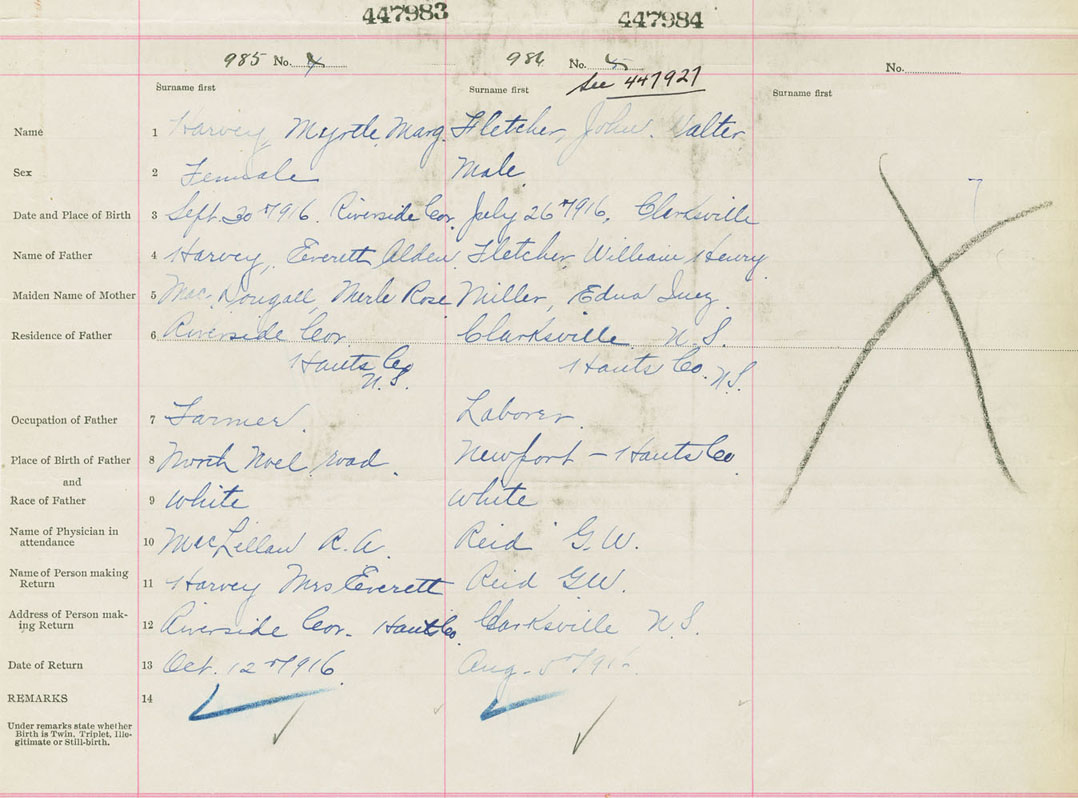 447983 447984
985 No. 4 986 No. 5 No.
See 447921
Surname first Surname first Surname first
Name 1 Harvey, Myrtle, Marg. Fletcher, John. Walter
Sex 2 Female Male
Date and Place of Birth 3 Sept. 30th 1916. Riverside Cor. July 26th 1916. Clarksville
Name of Father 4 Harvey, Everett Alden Fletcher William Henry
Maiden Name of Mother 5 MacDougall, Merle Rose Miller, Edna Inez.
Residence of Father 6 Riverside Cor. Clarksville N.S.
Hants Co. Hants Co. N.S.
N.S.
Occupation of Father 7 Farmer. Laborer.
Place of Birth of Father 8 North Noel road. Newport - Hants Co.
and
Race of Father 9 White White
Name of Physician in
attendance 10 MacLellan R.A. Reid G.W.
Name of Person making
Return 11 Harvey Mrs Everett Reid G.W.
Address of Person mak-
ing Return 12 Riverside Cor. Hants Co. Clarksville N.S.
Date of Return 13 Oct. 12th 1916. Aug. 5th 191
REMARKS 14
Under remarks state whether
Birth is Twin, Triplet, Ille-
gitimate or Still-birth.